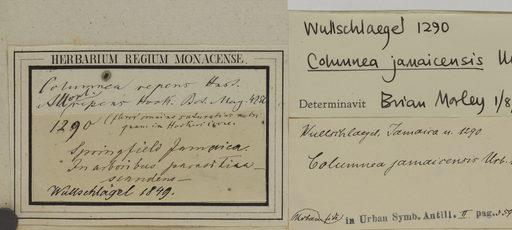 HERBARIUM REGIUM MONACENSE.
Columnea repens Hanst.
repens Hook. Bot. Mag. 4250
1290 (flore omnino
quam in Hookeri
Springfield Jamaica.
In arboribus parasitica
scandens
Wullschlägel 1849.
Wullschlaegel 1290
Columnea jamaicensis Ur
Determinavit Brian Morley 1/8
Wullschlaegel, Jamaica n. 1290.
Columnea jamaicensis Urb.
in Urban Symb. Antill. II pag.